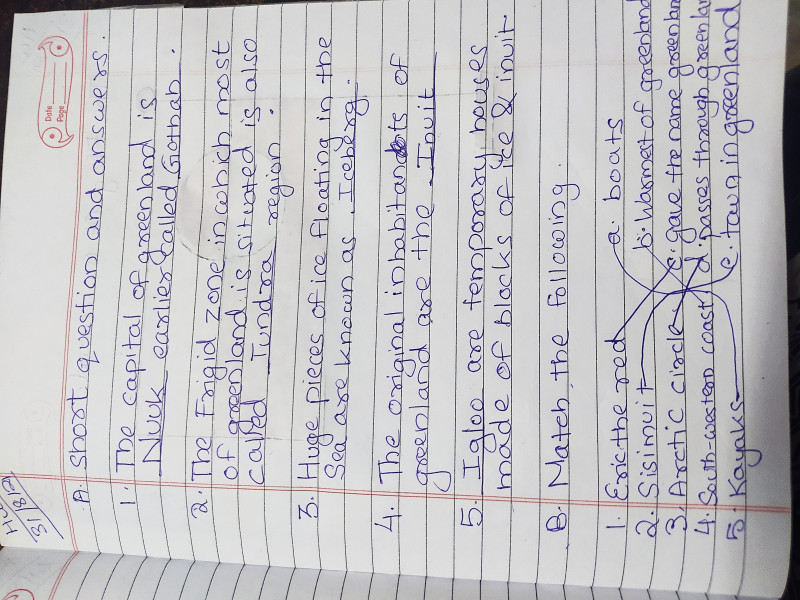 Date
Page
31/8/21
A. Short question and answers.
1. The capital of greenland is
Nuuk earlier called Gothab.
2. The Frigid zone in which most
of greenland is situated is also
called Tundra region.
3. Huge pieces of ice floating in the
Sea are known as Iceberg.
4. The original inhabitandts of
greenland are the Inuit
5. Igloo are temporary houses
made of blocks of ice & inuit.
B. Match the following.
1. Eric the red a. boats
2. Sisimuit b. Warmest of greenland
3. Arctic circle c. gave the name greenland
4. South-western coast d. passes through greenlan
5. Kayaks e. town in greenland